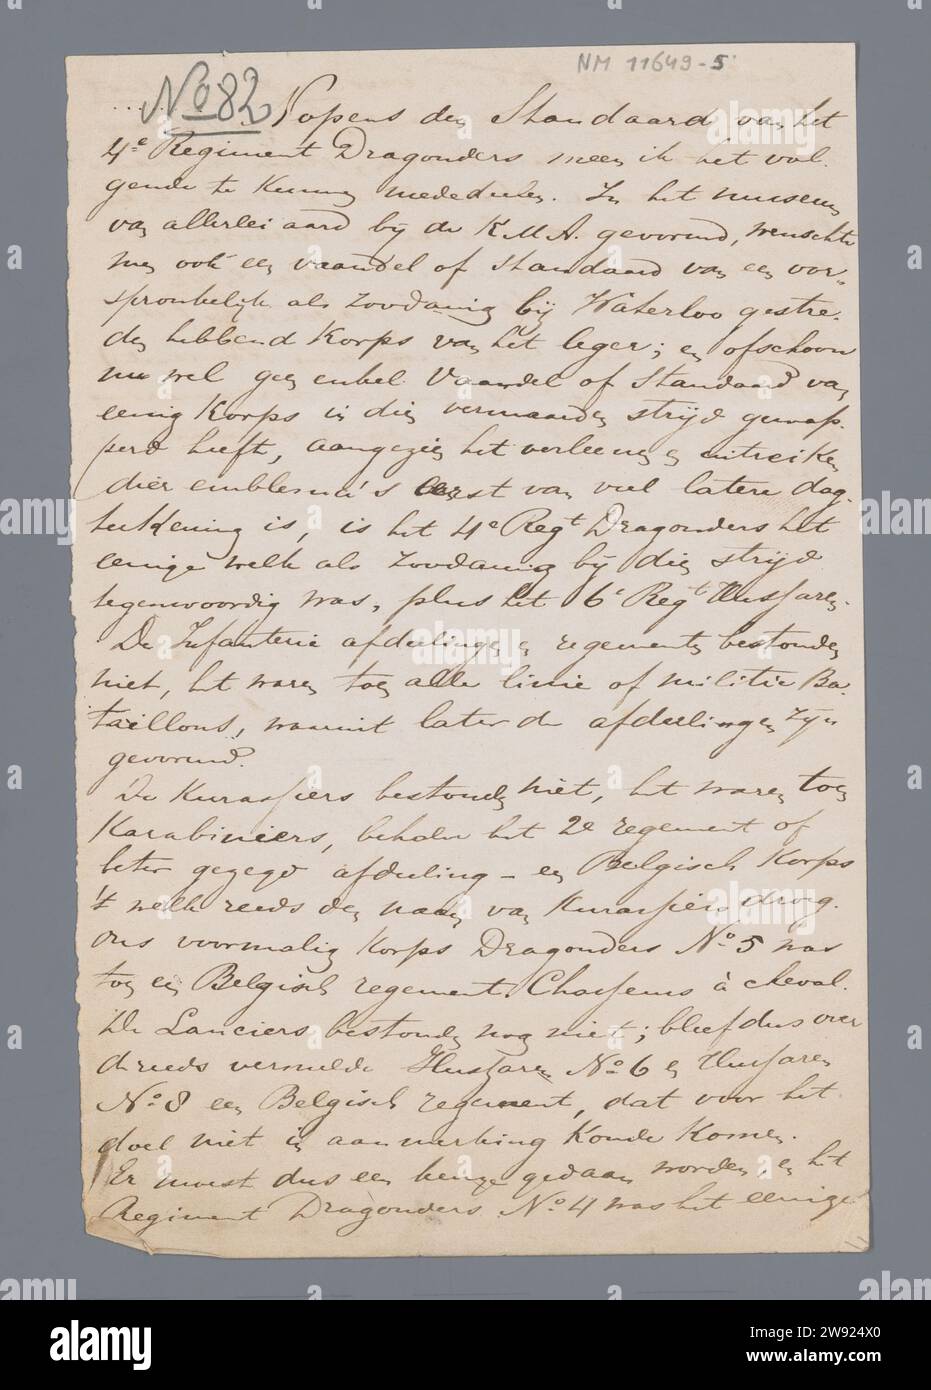 NM 11649-5
No 82
.... Nopens den Standaard van het
4e Regiment Dragonders meen ik het vol-
gende te kunnen mededeelen. In het museum
van allerlei aard bij de K.M.A. gevormd, wenschte
men ook een vaandel of standaard van een oor-
spronkelijk als zoodanig bij Waterloo gestre-
den hebbend Korps van het leger; en ofschoon
nu wel geen enkel Vaandel of Standaard van
eenig Korps in dien vermaarden strijd gewap-
perd heeft, aangezien het verleenen en uitreiken
dier emblema's eerst van veel latere dag-
teekening is, is het 4e Regt Dragonders het
eenige welk als zoodanig bij dien strijd
tegenwoordig was, plus het 6e Regt Hussaren.
De Infanterie afdeelingen en regementen bestonden
niet, het waren toen alle linie of militie Ba-
taillons, waaruit later de afdeelingen zijn
gevormd.
De Kurassiers bestonden niet, het waren toen
Karabiniers, behalve het 2e regement of
beter gezegd afdeeling - een Belgisch Korps
't welk reeds den naam van Kurassiers droeg.
ons voormalig Korps Dragonders No 5 was
toen een Belgisch regement Chasseurs à cheval.
De Lanciers bestonden nog niet; bleef dus over
de reeds vermelde Hussaren No 6 en Hussaren
No 8 een Belgisch regement, dat voor het
doel niet in aanmerking konde komen.
Er moest dus een keuze gedaan worden, en het
Regiment Dragonders No 4 was het eenige
alamy
Image ID: 2W924X0
www.alamy.com